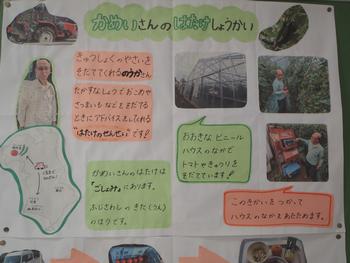 かめいさんのはたけしょうかい
きゅうしょくのやさいを
そだててくれるのうかさん
たかすなしょうでおこめや
さつまいもなどをそだてる
ときにアドバイスをしてれる
"はたけのせんせい"です!
おおきなビニール
ハウスのなかで
トマトやきゅうりを
そだてています。
かめいさんのはたけは
「ごしょみ」にあります。
ふじさわしのきた(うえ)
のほうです。
このきかいをつかって
ハウスのなかをあたためます。